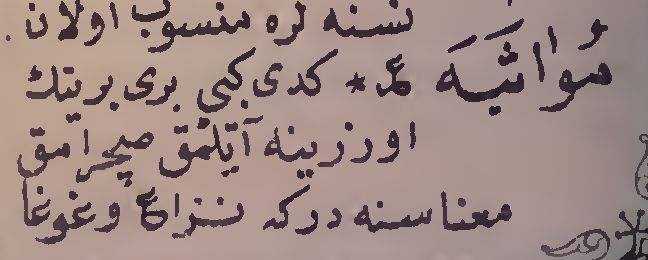 نسنه لره منسوب اولان .
مُواثَبَه ع * كدى كبى برى برينك
اوزرينه آتيلمق صچرامق
معناسنه دركه نزاع وغوغا